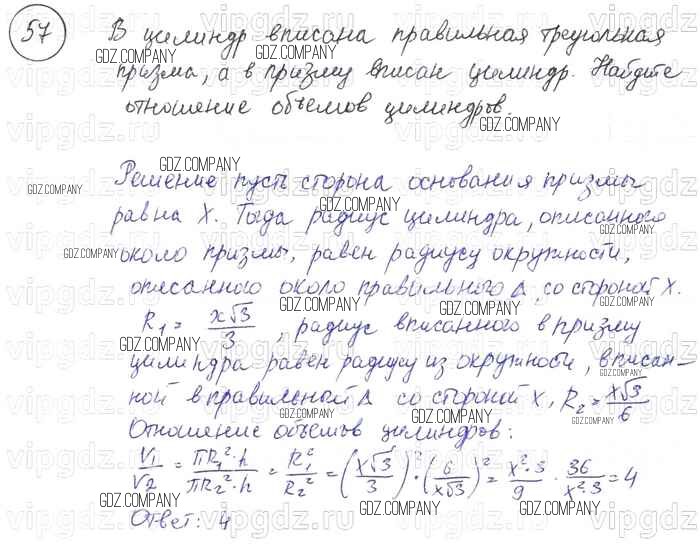 57 В цилиндр вписана правильная треугольная
призма, а в призму вписан цилиндр. Найдите
отношение объемов цилиндров.
Решение пусть сторона основания призмы
равна X. Тогда радиус цилиндра, описанного
около призмы, равен радиусу окружности,
описанного около правильного Δ, со стороной X.
R₁ = x√3/3, радиус вписанного в призму
цилиндра равен радиусу из окружности, вписан-
ной в правильный Δ со стороной X, R₂ = x√3/6
Отношение объемов цилиндров:
V₁/V₂ = πR₁²·h/πR₂²·h = R₁²/R₂² = (x√3/3)²·(6/x√3)² = x²·3/9 · 36/x²·3 = 4
Ответ: 4
GDZ.COMPANY
vipgdz.ru